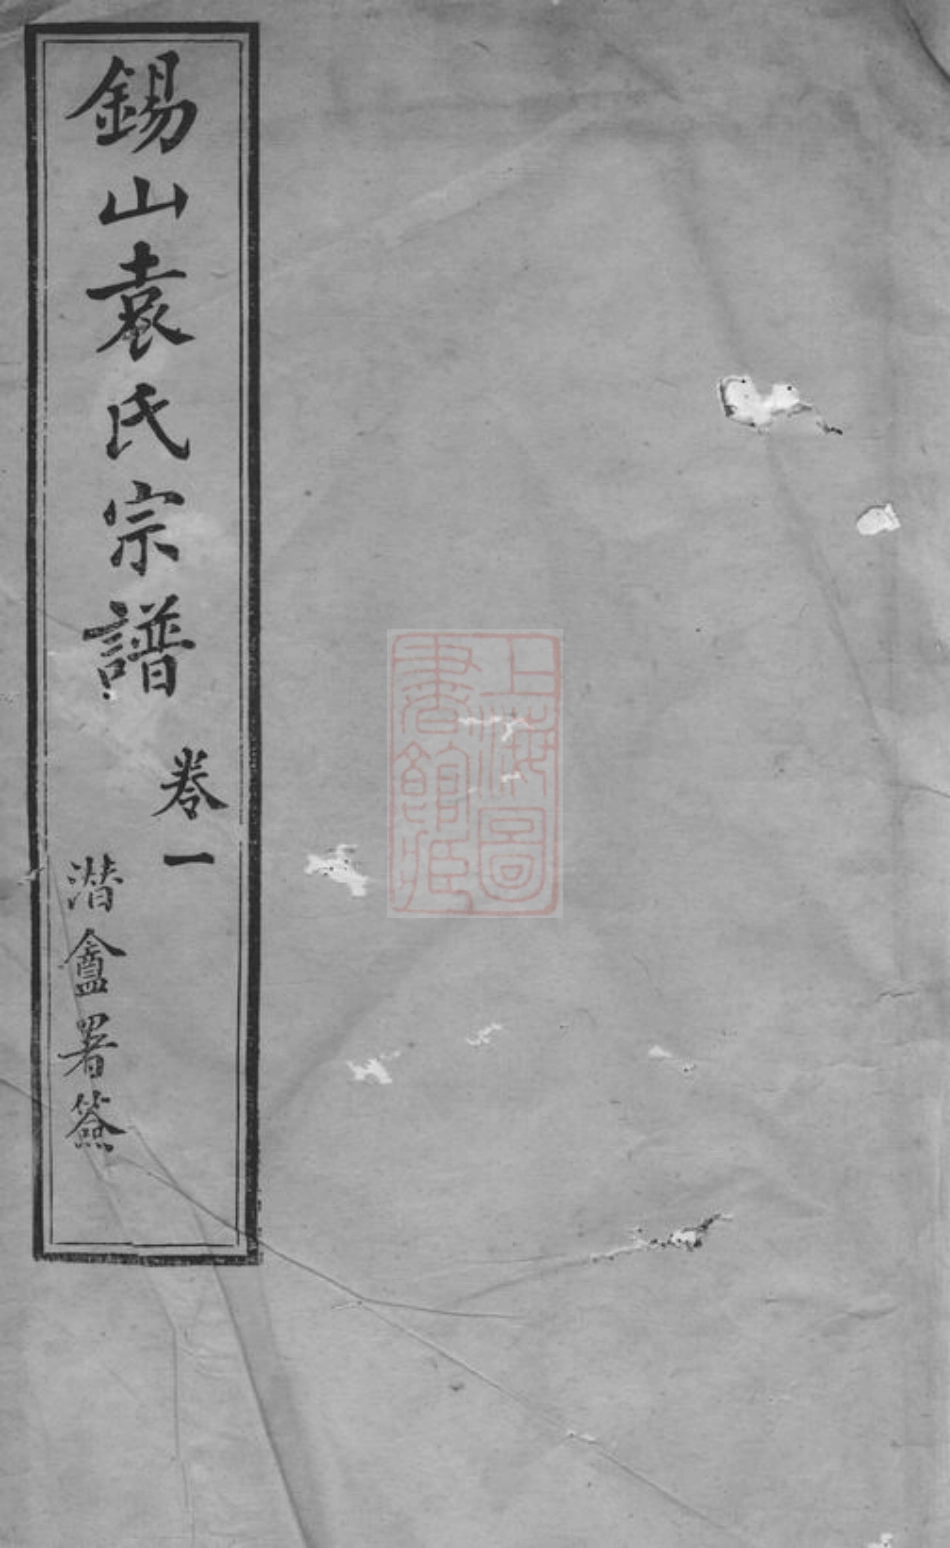 錫山袁氏宗譜
卷一
潛盦署簽
上海圖
書館藏